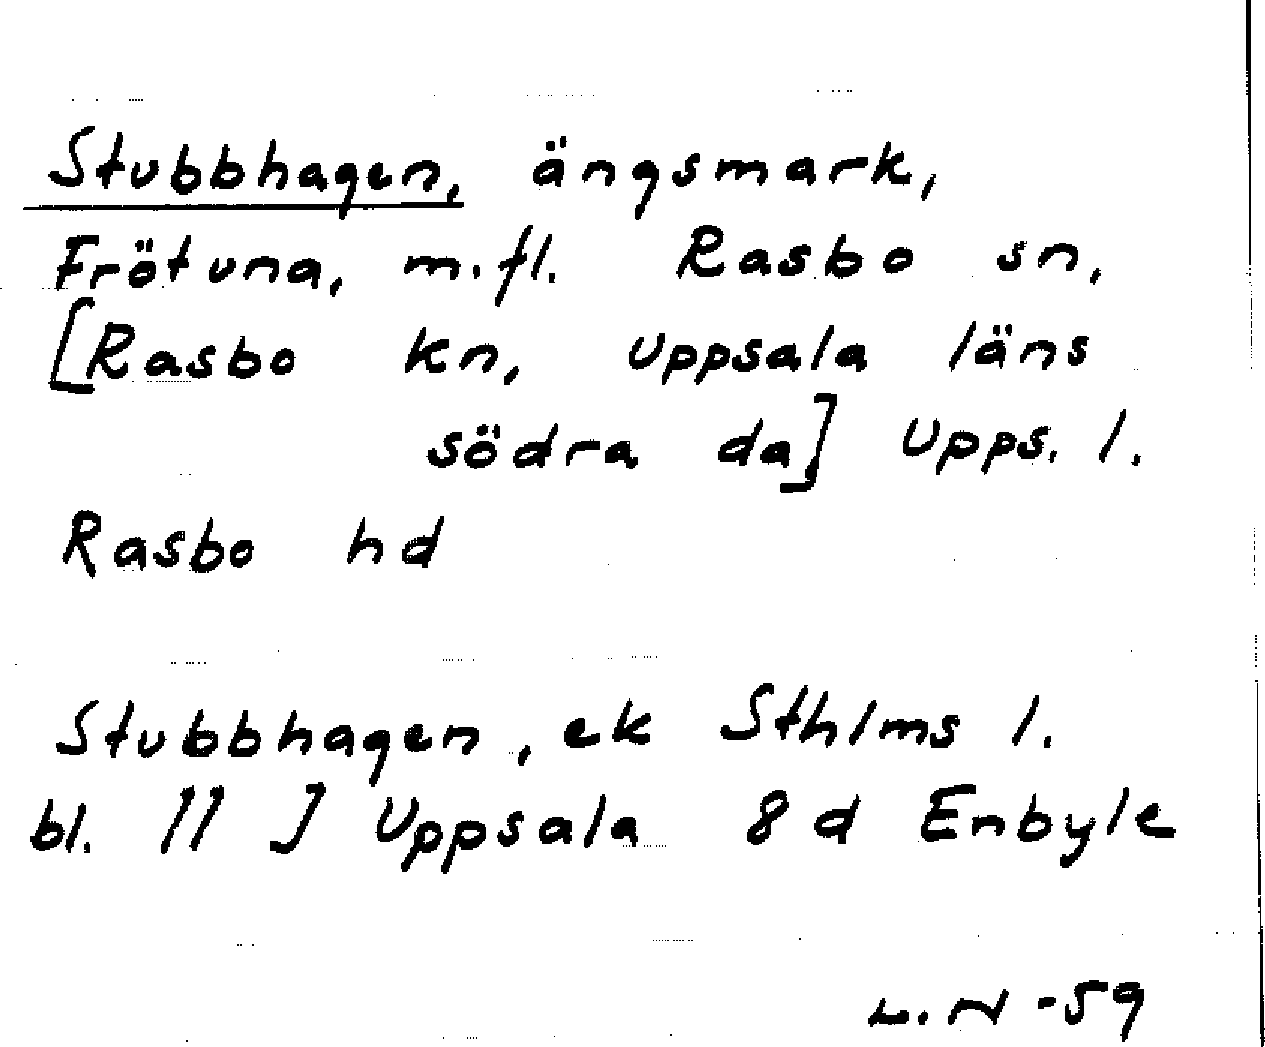 Stubbhagen, ängsmark,
Frötuna, m.fl. Rasbo sn,
[Rasbo kn, Uppsala läns
södra da] Upps. l.
Rasbo hd
Stubbhagen, ek Sthlms l.
bl. 11 J Uppsala 8 d Enbyle
L.N -59